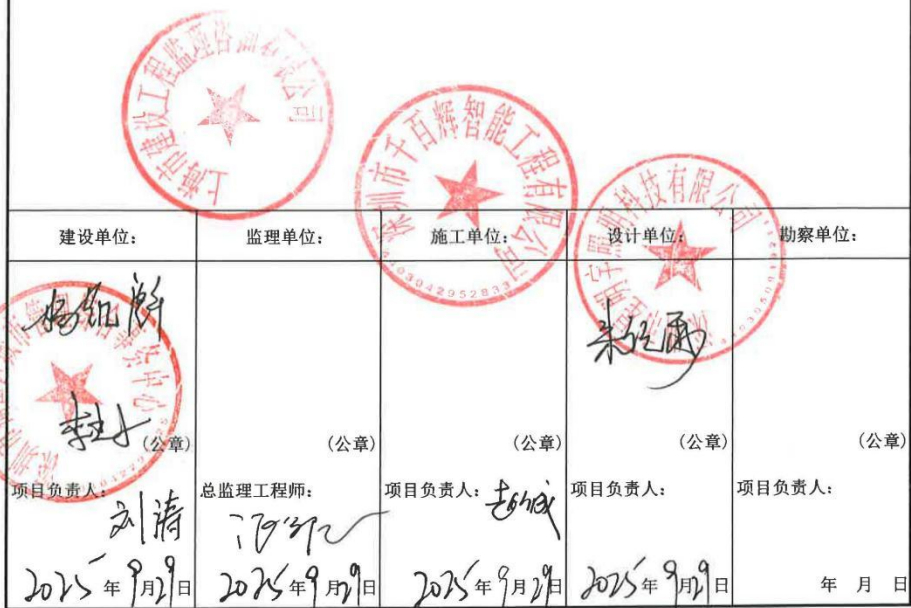 上海市建设工程监理咨询有限公司
深圳市千百辉智能工程有限公司
4403042952833
明宇照明科技有限公司
建设单位：
监理单位：
施工单位：
设计单位：
勘察单位：
(公章)
(公章)
(公章)
(公章)
(公章)
项目负责人：
刘涛
总监理工程师：
项目负责人：
项目负责人：
项目负责人：
2025年9月29日
2025年9月29日
2025年9月29日
2025年9月29日
年 月 日